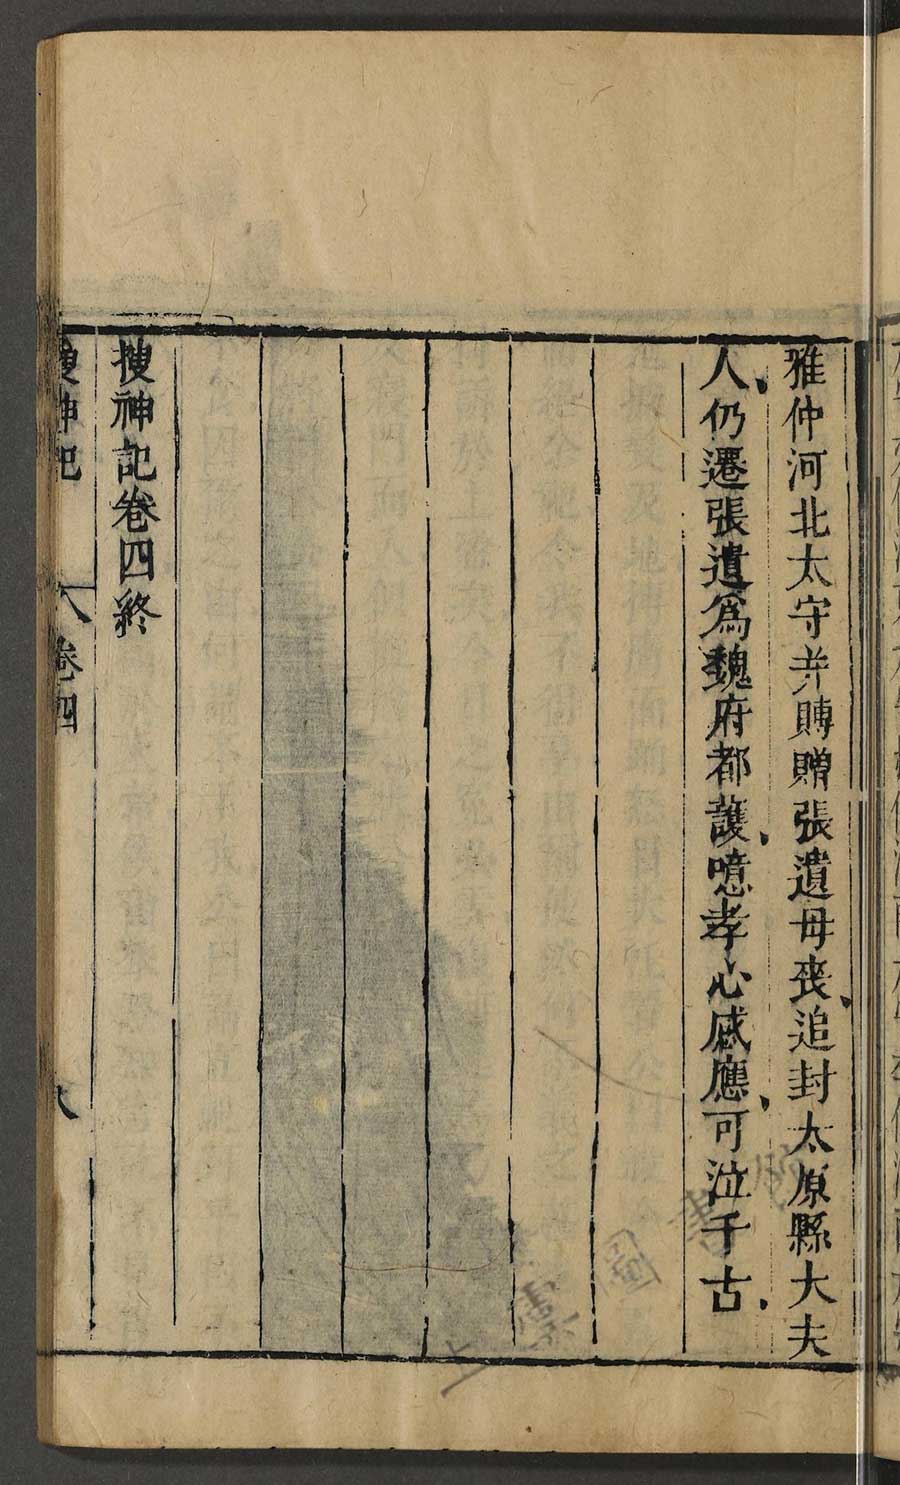 雅仲河北太守并賻贈張遺母丧追封太原縣大夫
人仍遷張遺爲魏府都護噫孝心感應可泣千古
搜神記卷四終
搜神記
卷四